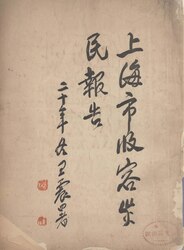 上海市收容災
民報告
二十年冬王震署